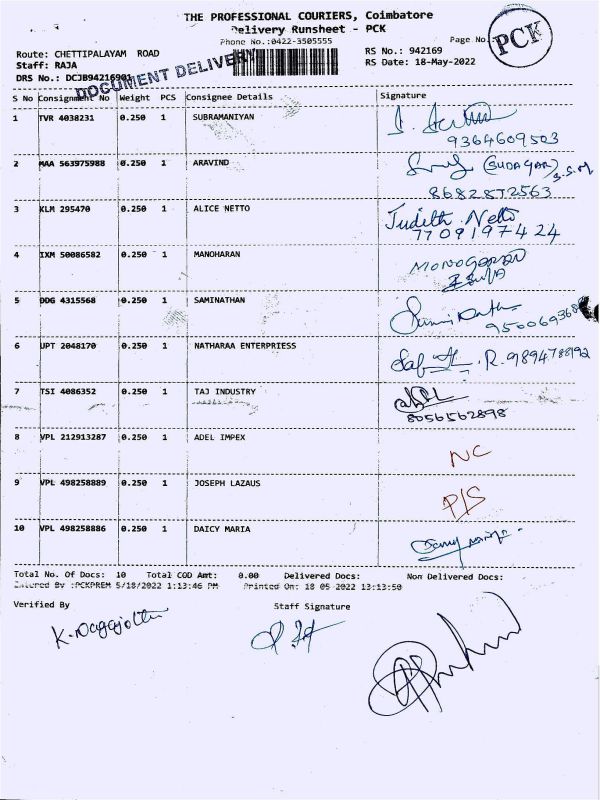 THE PROFESSIONAL COURIERS, Coimbatore
Delivery Runsheet - PCK
Phone No.:0422-3505555
Page No.
PCK
Route: CHETTIPALAYAM ROAD
RS No.: 942169
Staff: RAJA
RS Date: 18-May-2022
DRS No.: DCJB94216901
DOCUMENT DELIVERY
S No Consignment No Weight PCS Consignee Details Signature
1 TVR 4038231 0.250 1 SUBRAMANIYAN
9364609503
2 MAA 563975988 0.250 1 ARAVIND (SUDAGAR)
8682872563
3 KLM 295470 0.250 1 ALICE NETTO Judith Netto
7709197424
4 IXM 50086582 0.250 1 MANOHARAN
5 DDG 4315568 0.250 1 SAMINATHAN
6 JPT 2048170 0.250 1 NATHARAA ENTERPRIESS R. 9894788192
7 TSI 4086352 0.250 1 TAJ INDUSTRY
8056562898
8 VPL 212913287 0.250 1 ADEL IMPEX NC
9 VPL 498258889 0.250 1 JOSEPH LAZAUS P/S
10 VPL 498258886 0.250 1 DAICY MARIA
Total No. Of Docs: 10 Total COD Amt: 0.00 Delivered Docs: Non Delivered Docs:
Entered By :PCKPREM 5/18/2022 1:13:46 PM Printed On: 18 05 2022 13:13:50
Verified By Staff Signature